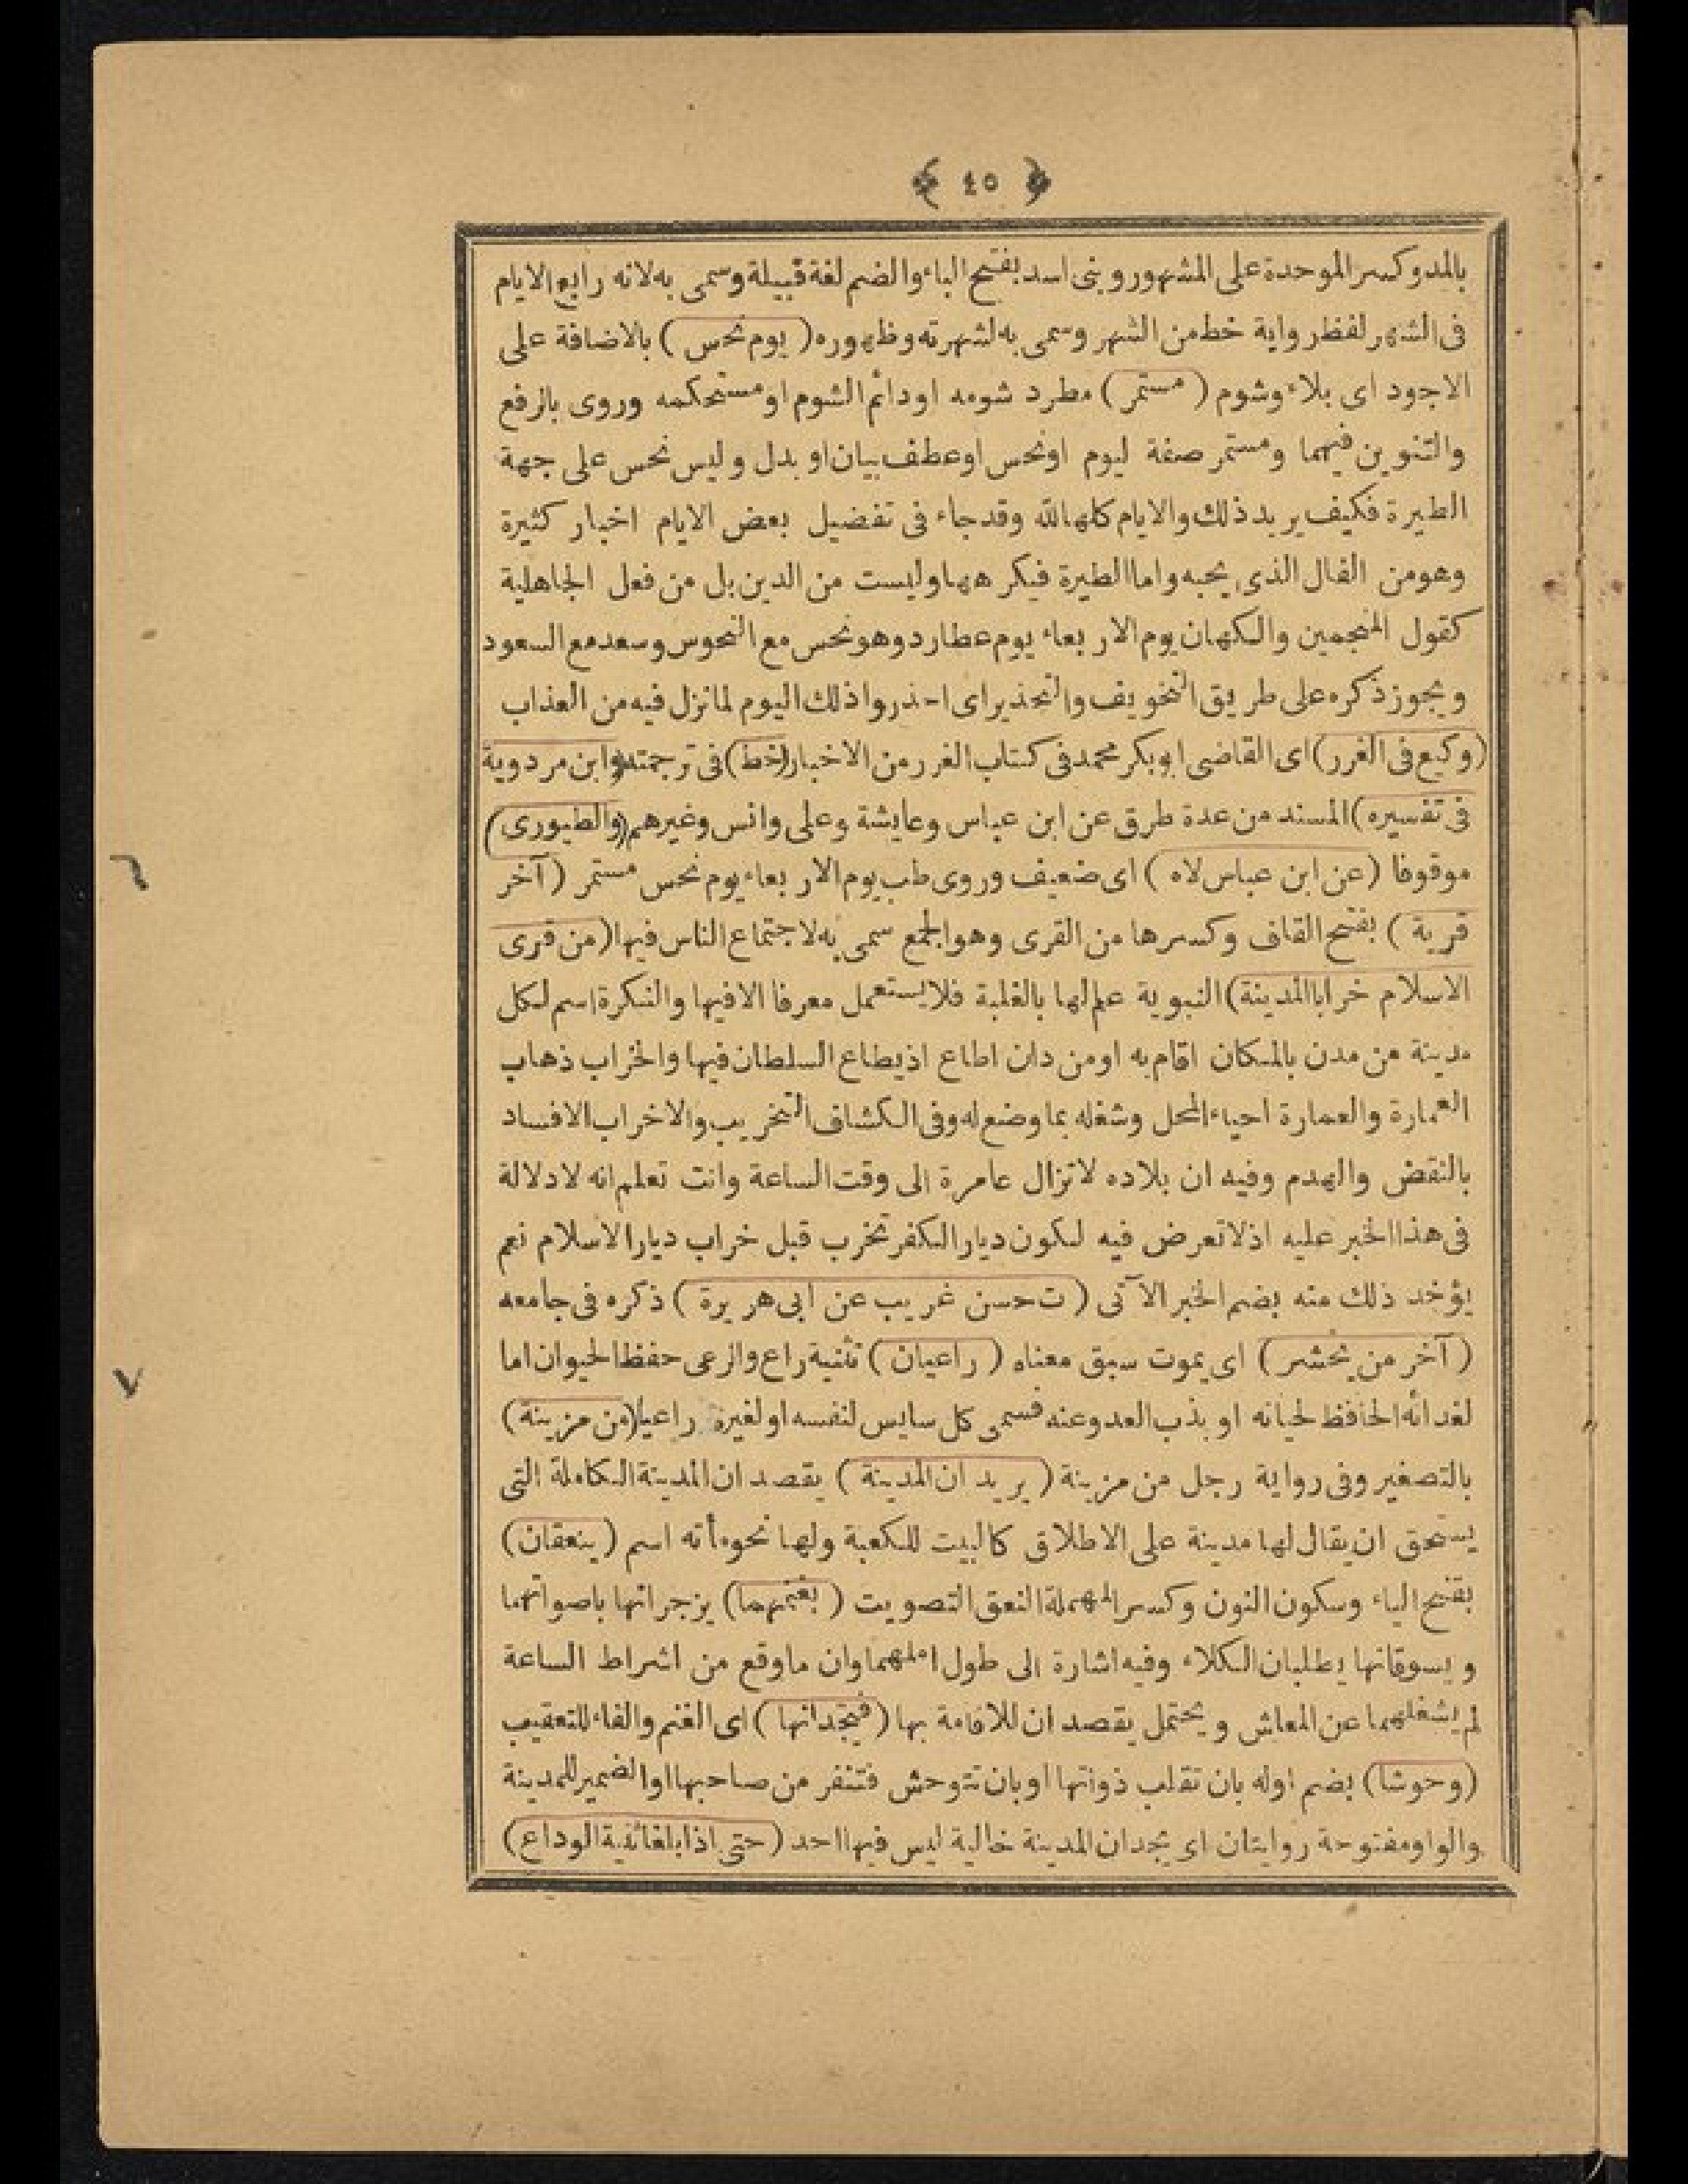 ﴿ ٤٥ ﴾
بالمد وكسر الموحدة على المشهور وبنى اسد بفتح الباء والضم لغة قبيلة وسمى به لانه رابع الايام
فى الشهر لفظ رواية خط من الشهر وسمى به لشهرته وظهوره (يوم نحس) بالاضافة على
الاجود اى بلاء وشوم (مستمر) مطرد شومه او دائم الشوم او مستحكمه وروى بالرفع
والتنوين فيهما ومستمر صفة ليوم او نحس او عطف بيان او بدل وليس نحس على جهة
الطيرة فكيف يريد ذلك والايام كلها لله وقد جاء فى تفضيل بعض الايام اخبار كثيرة
وهو من الفال الذى يحبه واما الطيرة فيكرهها وليست من الدين بل من فعل الجاهلية
كقول المنجمين والكهان يوم الاربعاء يوم عطارد وهو نحس مع النحوس وسعد مع السعود
ويجوز ذكره على طريق التخويف والتحذير اى احذروا ذلك اليوم لما نزل فيه من العذاب
(وكيع فى الغرر) اى القاضى ابو بكر محمد فى كتاب الغرر من الاخبار (خط) فى ترجمته (وابن مردوية
فى تفسيره) المسند من عدة طرق عن ابن عباس وعايشة وعلى وانس وغيرهم (والطيورى)
موقوفا (عن ابن عباس لاه) اى ضعيف وروى طب يوم الاربعاء يوم نحس مستمر (آخر
قرية) بفتح القاف وكسرها من القرى وهو الجمع سمى به لاجتماع الناس فيها (من قرى
الاسلام خرابا المدينة) النبوية علم لها بالغلبة فلا يستعمل معرفا الا فيها والنكرة اسم لكل
مدينة من مدن بالمكان اقام به او من دان اطاع اذ يطاع السلطان فيها والخراب ذهاب
العمارة والعمارة احياء المحل وشغله بما وضع له وفى الكشاف التخريب والاخراب الافساد
بالنقض والهدم وفيه ان بلاده لا تزال عامرة الى وقت الساعة وانت تعلم انه لا دلالة
فى هذا الخبر عليه اذ لا تعرض فيه لكون ديار الكفر تخرب قبل خراب ديار الاسلام نعم
يؤخذ ذلك منه بضم الخبر الآتى (ت حسن غريب عن ابى هريرة) ذكره فى جامعه
(آخر من يحشر) اى يموت سبق معناه (راعيان) تثنية راع والرعى حفظ الحيوان اما
لغدائه الحافظ لحياته او بذب العدو عنه فسمى كل سايس لنفسه او لغيره راعيا (من مزينة)
بالتصغير وفى رواية رجل من مزينة (يريدان المدينة) يقصدان المدينة الكاملة التى
يستحق ان يقال لها مدينة على الاطلاق كالبيت للكعبة ولها نحو مأته اسم (ينعقان)
بفتح الياء وسكون النون وكسر المهملة النعق التصويت (بغنمهما) يزجرانها باصواتهما
ويسوقانها يطلبان الكلاء وفيه اشارة الى طول املهما وان ما وقع من اشراط الساعة
لم يشغلهما عن المعاش ويحتمل يقصدان للاقامة بها (فيجدانها) اى الغنم والفاء للتعقيب
(وحوشا) بضم اوله بان تقلب ذواتها او بان تتوحش فتنفر من صاحبها او الضمير للمدينة
والواو مفتوحة روايتان اى يجدان المدينة خالية ليس فيها احد (حتى اذا بلغا ثنية الوداع)
٦
٧